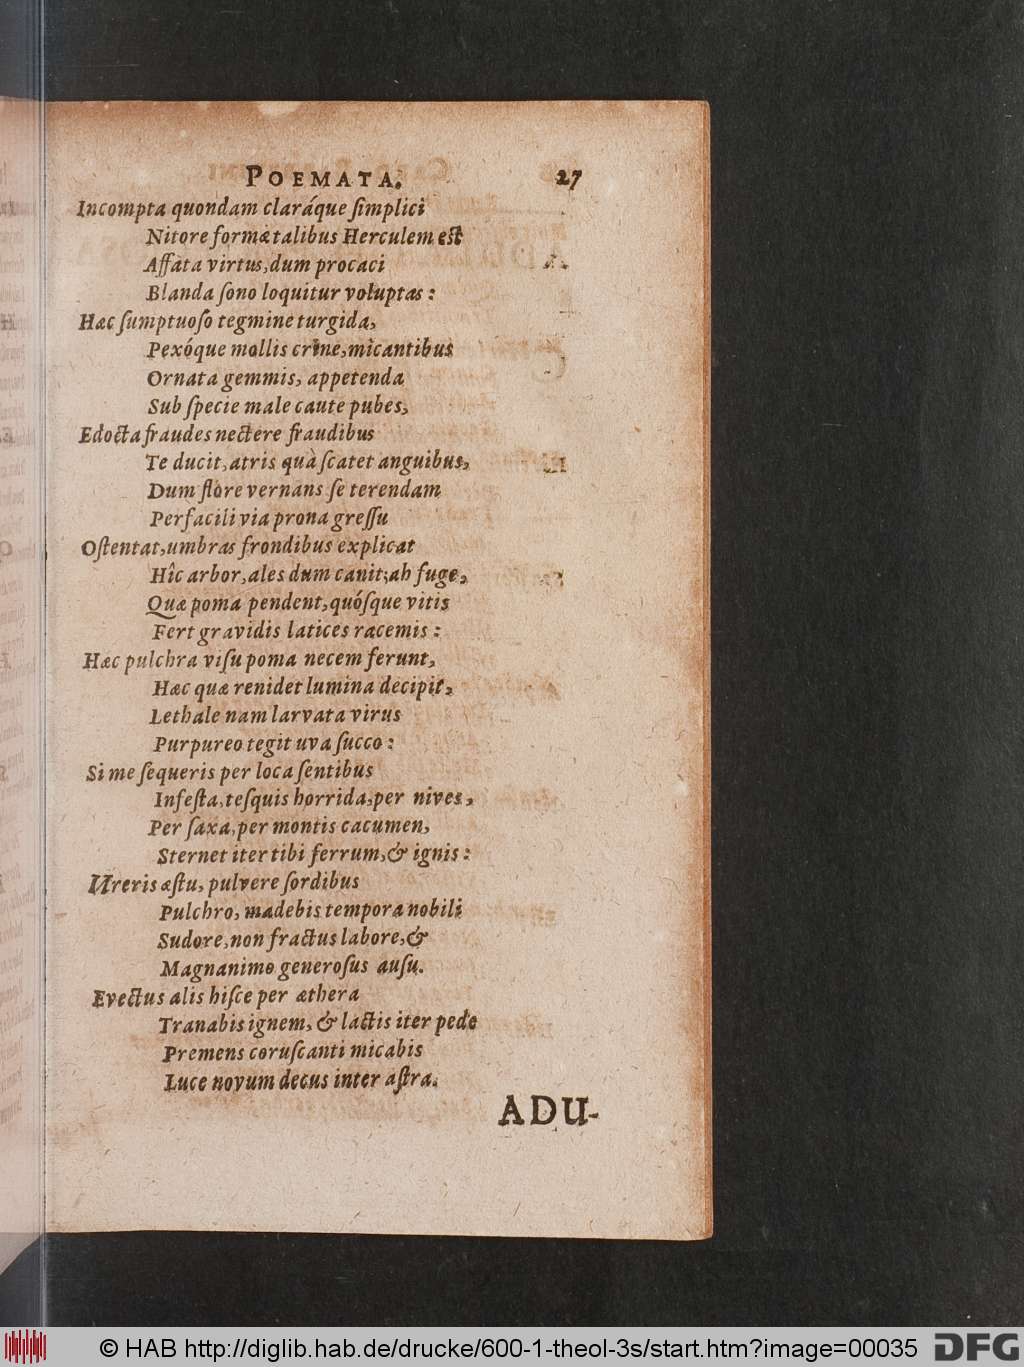 POEMATA. 27
Incompta quondam claráque ſimplici
Nitore formæ talibus Herculem eſt
Affata virtus, dum procaci
Blanda ſono loquitur voluptas:
Hæc ſumptuoſo tegmine turgida,
Pexóque mollis crine, micantibus
Ornata gemmis, appetenda
Sub ſpecie male caute pubes,
Edocta fraudes nectere fraudibus
Te ducit, atris quà ſcatet anguibus,
Dum flore vernans ſe terendam
Perfacili via prona greſſu
Oſtentat, umbras frondibus explicat
Hîc arbor, ales dum canit; ah fuge,
Quæ poma pendent, quóſque vitis
Fert gravidis latices racemis:
Hæc pulchra viſu poma necem ferunt,
Hæc quæ renidet lumina decipit,
Lethale nam larvata virus
Purpureo tegit uva ſucco:
Si me ſequeris per loca ſentibus
Infeſta, teſquis horrida, per nives,
Per ſaxa, per montis cacumen,
Sternet iter tibi ferrum, & ignis:
Ureris æſtu, pulvere ſordibus
Pulchro, madebis tempora nobili
Sudore, non fractus labore, &
Magnanimo generoſus auſu.
Evectus alis hiſce per æthera
Tranabis ignem, & lactis iter pede
Premens coruſcanti micabis
Luce novum decus inter aſtra.
ADU-
© HAB http://diglib.hab.de/drucke/600-1-theol-3s/start.htm?image=00035 DFG